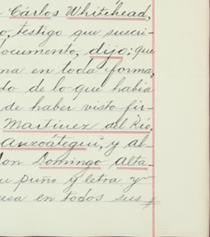 Carlos Whitehead,
o, testigo que suscri-
ocumento, dijo: que
na en toda forma,
do de lo que habia
de haber visto fir-
Martinez del Rio,
Anzoátegui, y al
don Domingo Alta-
u puño y letra y
usa en todos sus